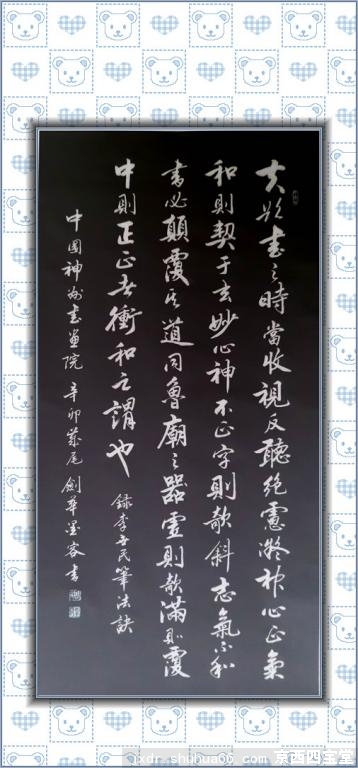 夫欲書之時當收視反聽絶慮凝神心正氣
和則契于玄妙心神不正字則欹斜志氣不和
書必顛覆其道同魯廟之器虛則欹滿則覆
中則正正者衝和之謂也 錄李世民筆法訣
中國神州書畫院 辛卯歲尾劍華墨客書
京西四宝堂